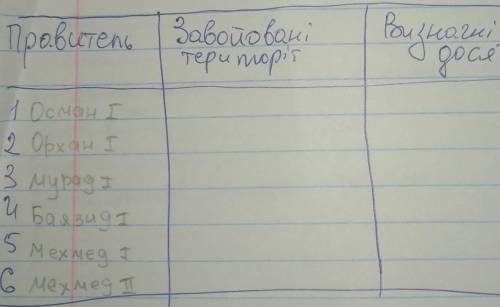 Правитель Завойовані Визначні
території дося
1 Осман I
2 Орхан I
3 Мурад I
4 Баязид I
5 Мехмед I
6 Мехмед II